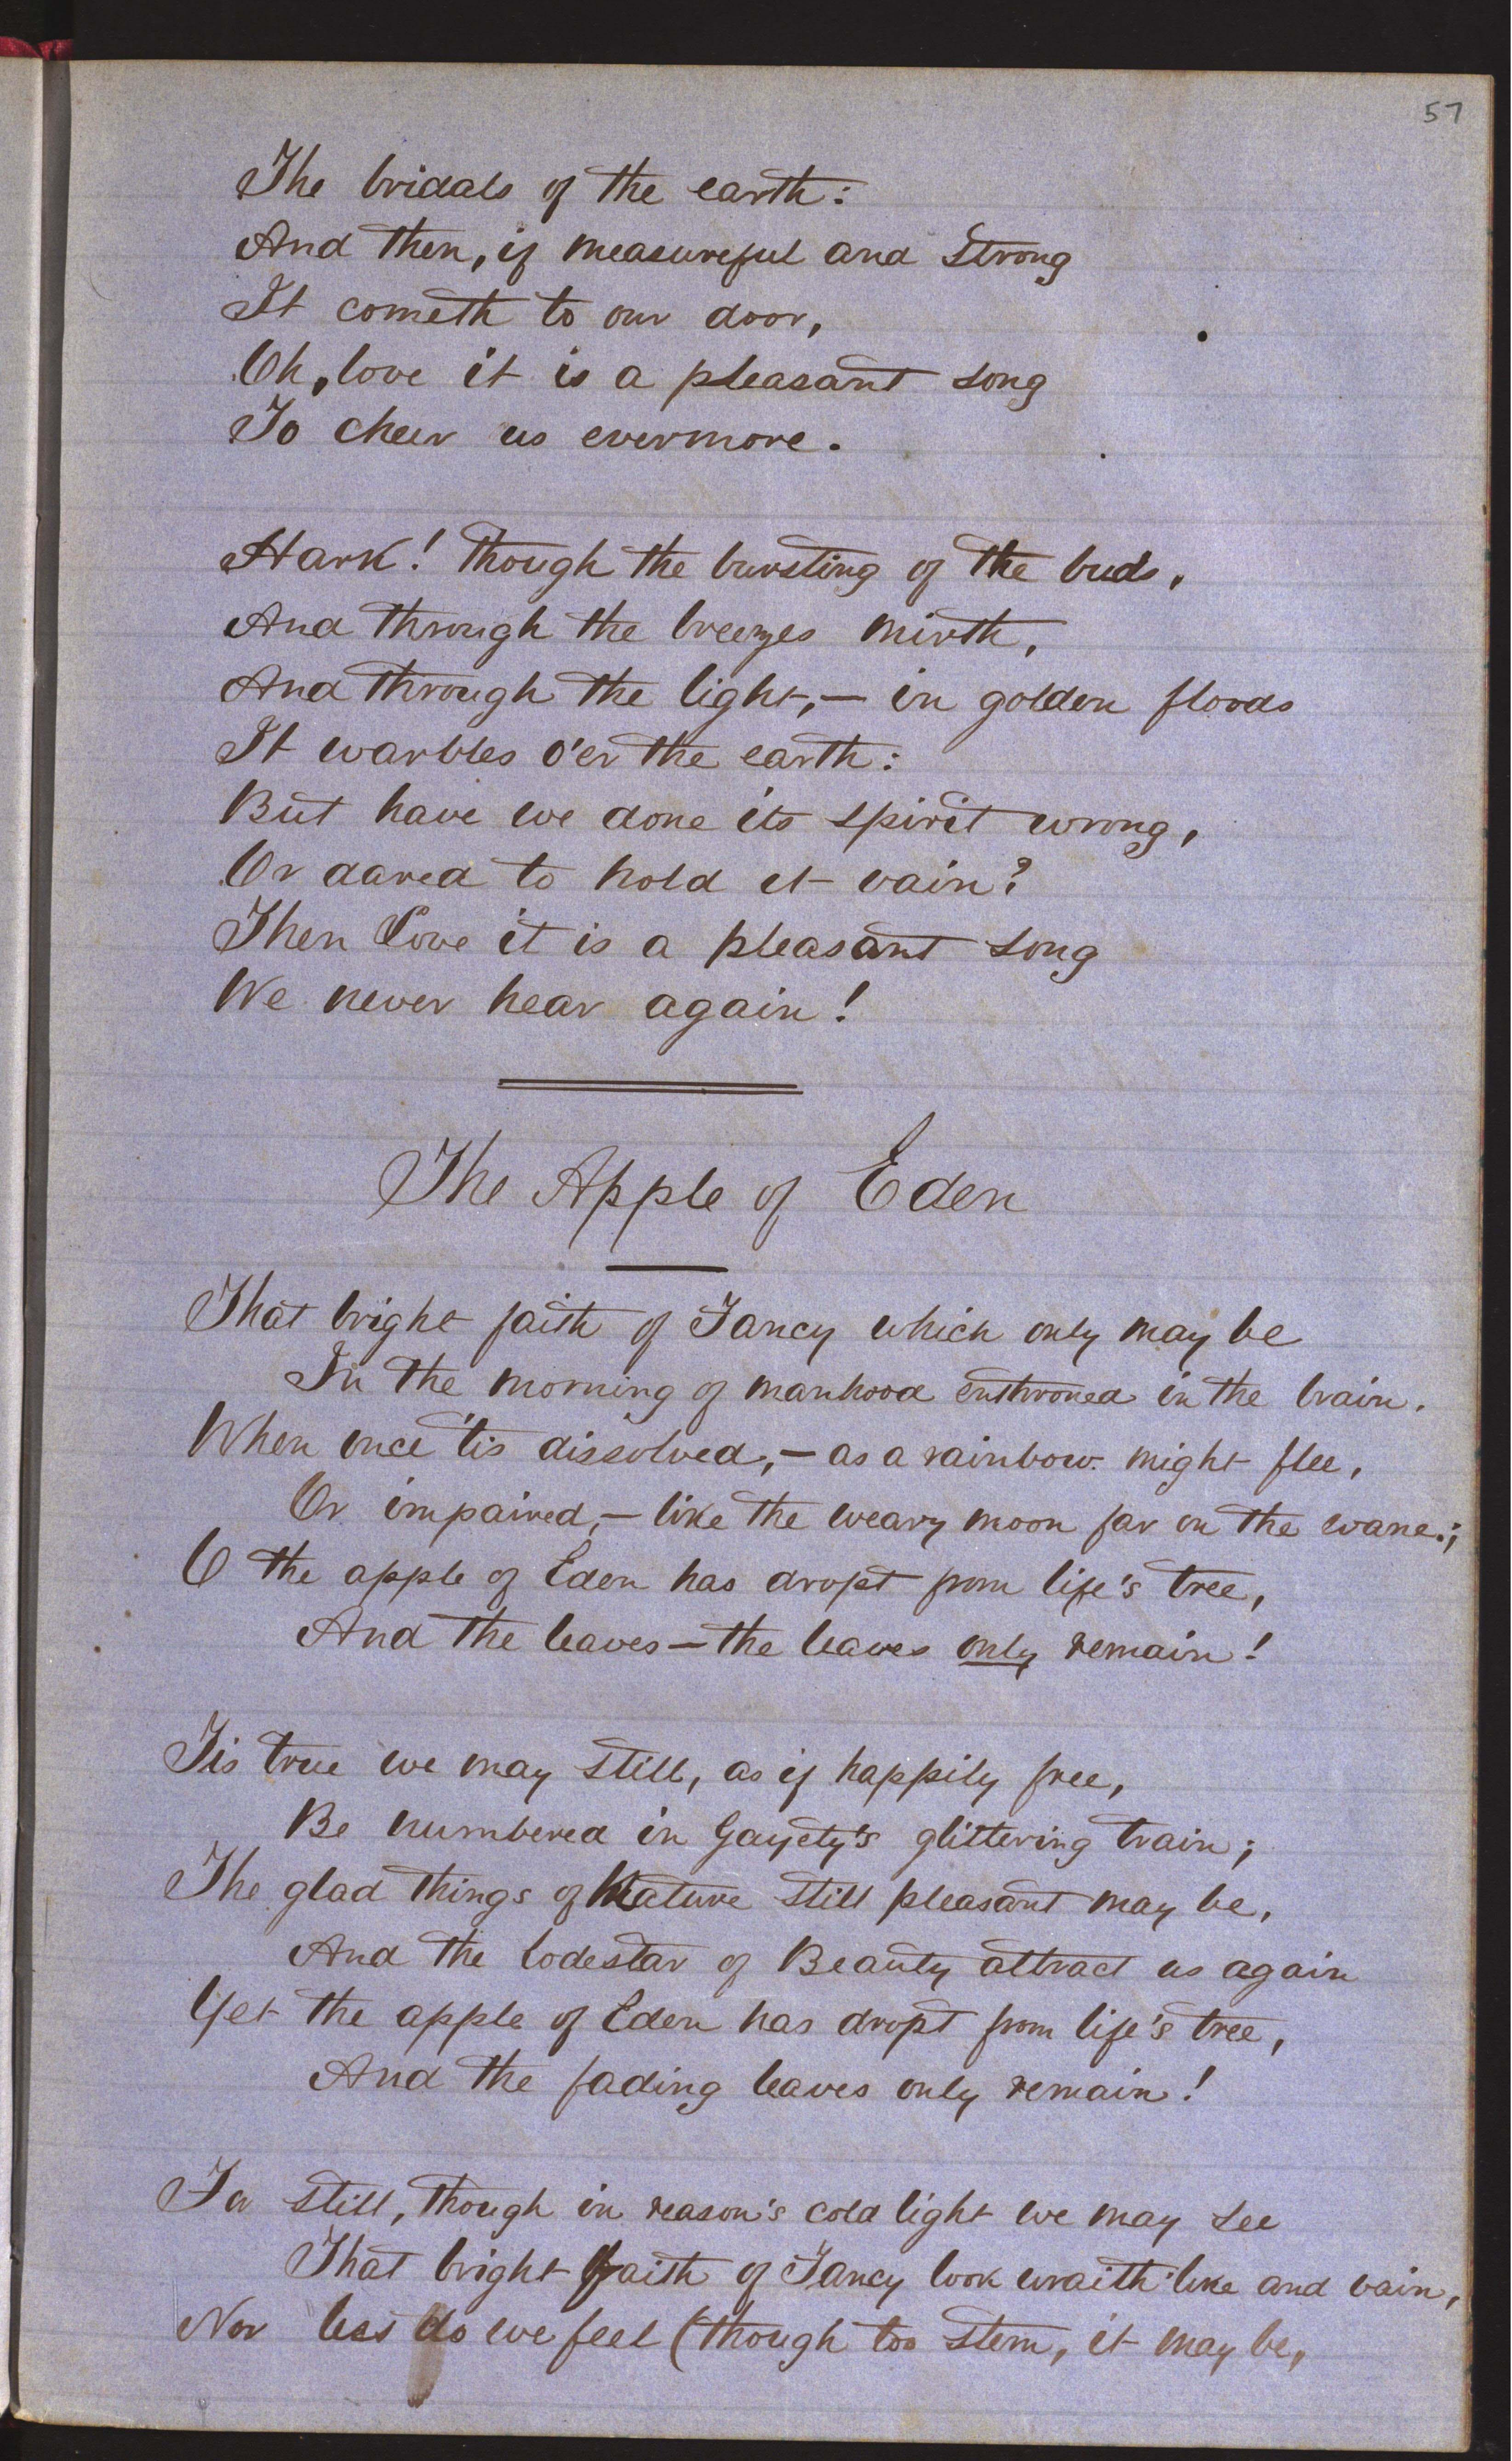 57
The bridals of the earth:
And then, if measureful and strong
It cometh to our door,
Oh, love it is a pleasant song
To cheer us evermore.
Hark! though the bursting of the buds,
And through the breezes mirth,
And through the light,— in golden floods
It warbles o'er the earth:
But have we done its spirit wrong,
Or dared to hold it vain?
Then Love it is a pleasant song
We never hear again!
The Apple of Eden
That bright faith of Fancy which only may be
In the morning of manhood enthroned in the brain.
When once 'tis dissolved,— as a rainbow might flee,
Or impaired,— like the weary moon far on the wane.;
O the apple of Eden has dropt from life's tree,
And the leaves — the leaves only remain!
Tis true we may still, as if happily free,
Be numbered in Gayety's glittering train;
The glad things of Nature still pleasant may be,
And the lodestar of Beauty attract us again
Yet the apple of Eden has dropt from life's tree,
And the fading leaves only remain!
For still, though in reason's cold light we may see
That bright faith of Fancy look wraith-like and vain,
Nor less do we feel (though too stern, it may be,